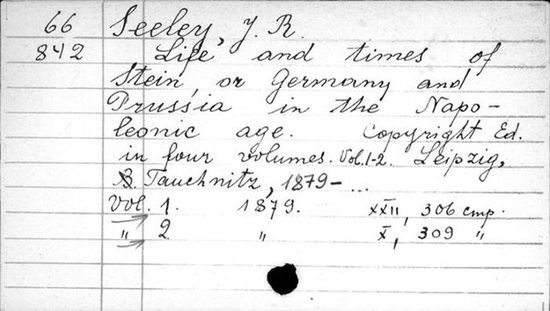 66 Seeley, J. R.
842 Life and times of
Stein, or Germany and
Prussia in the Napo-
leonic age. Copyright Ed.
in four volumes. Vol. 1-2. Leipzig,
B. Tauchnitz, 1879- ...
Vol. 1. 1879. XXII, 306 cmp.
" 2 " X, 309 "